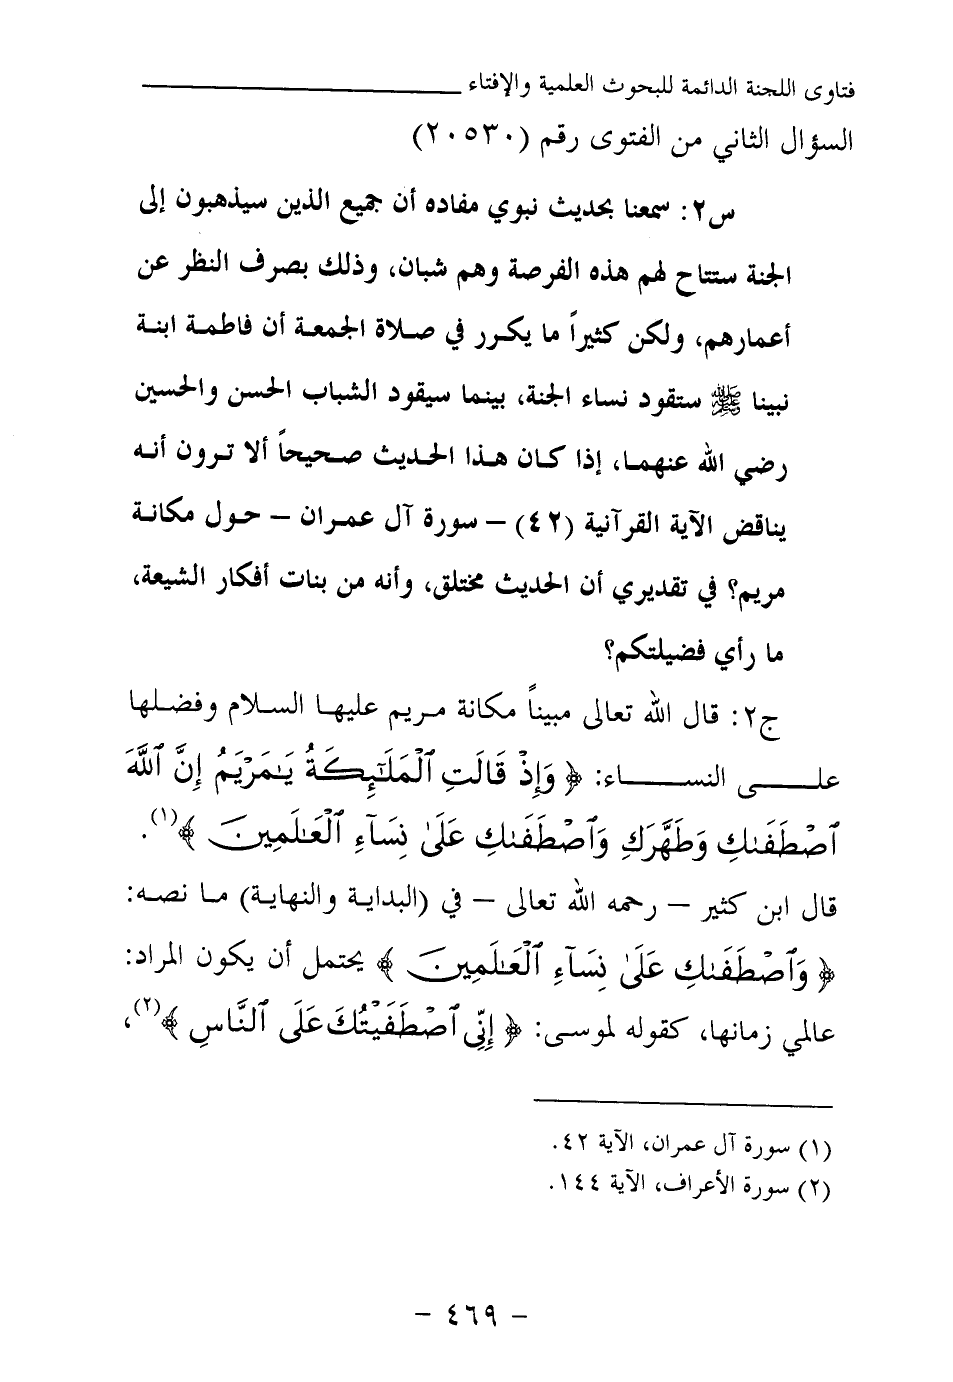 فتاوى اللجنة الدائمة للبحوث العلمية والإفتاء
السؤال الثاني من الفتوى رقم (٢٠٥٣٠)
س٢: سمعنا بحديث نبوي مفاده أن جميع الذين سيذهبون إلى
الجنة ستتاح لهم هذه الفرصة وهم شبان، وذلك بصرف النظر عن
أعمارهم، ولكن كثيراً ما يكرر في صلاة الجمعة أن فاطمة ابنة
نبينا ﷺ ستقود نساء الجنة، بينما سيقود الشباب الحسن والحسين
رضي الله عنهما، إذا كان هذا الحديث صحيحاً ألا ترون أنه
يناقض الآية القرآنية (٤٢) – سورة آل عمران – حول مكانة
مريم؟ في تقديري أن الحديث مختلق، وأنه من بنات أفكار الشيعة،
ما رأي فضيلتكم؟
ج٢: قال الله تعالى مبيناً مكانة مريم عليها السلام وفضلها
على النساء: ﴿ وَإِذْ قَالَتِ ٱلْمَلَٰٓئِكَةُ يَٰمَرْيَمُ إِنَّ ٱللَّهَ
ٱصْطَفَىٰكِ وَطَهَّرَكِ وَٱصْطَفَىٰكِ عَلَىٰ نِسَآءِ ٱلْعَٰلَمِينَ ﴾(١).
قال ابن كثير – رحمه الله تعالى – في (البداية والنهاية) ما نصه:
﴿ وَٱصْطَفَىٰكِ عَلَىٰ نِسَآءِ ٱلْعَٰلَمِينَ ﴾ يحتمل أن يكون المراد:
عالمي زمانها، كقوله لموسى: ﴿ إِنِّي ٱصْطَفَيْتُكَ عَلَى ٱلنَّاسِ ﴾(٢)،
(١) سورة آل عمران، الآية ٤٢.
(٢) سورة الأعراف، الآية ١٤٤.
– ٤٦٩ –